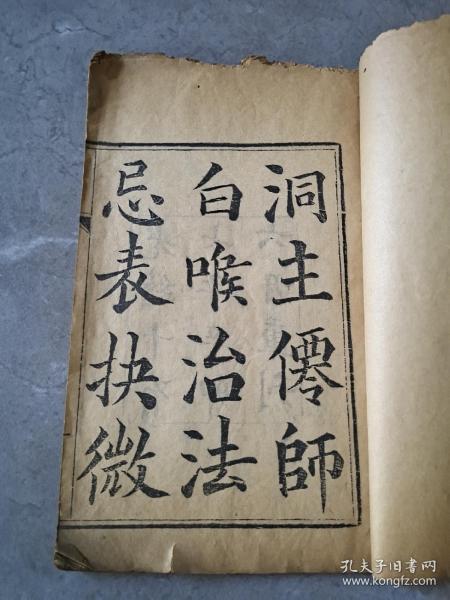 洞主僊師
白喉治法
忌表抉微
孔夫子旧书网
www.kongfz.com